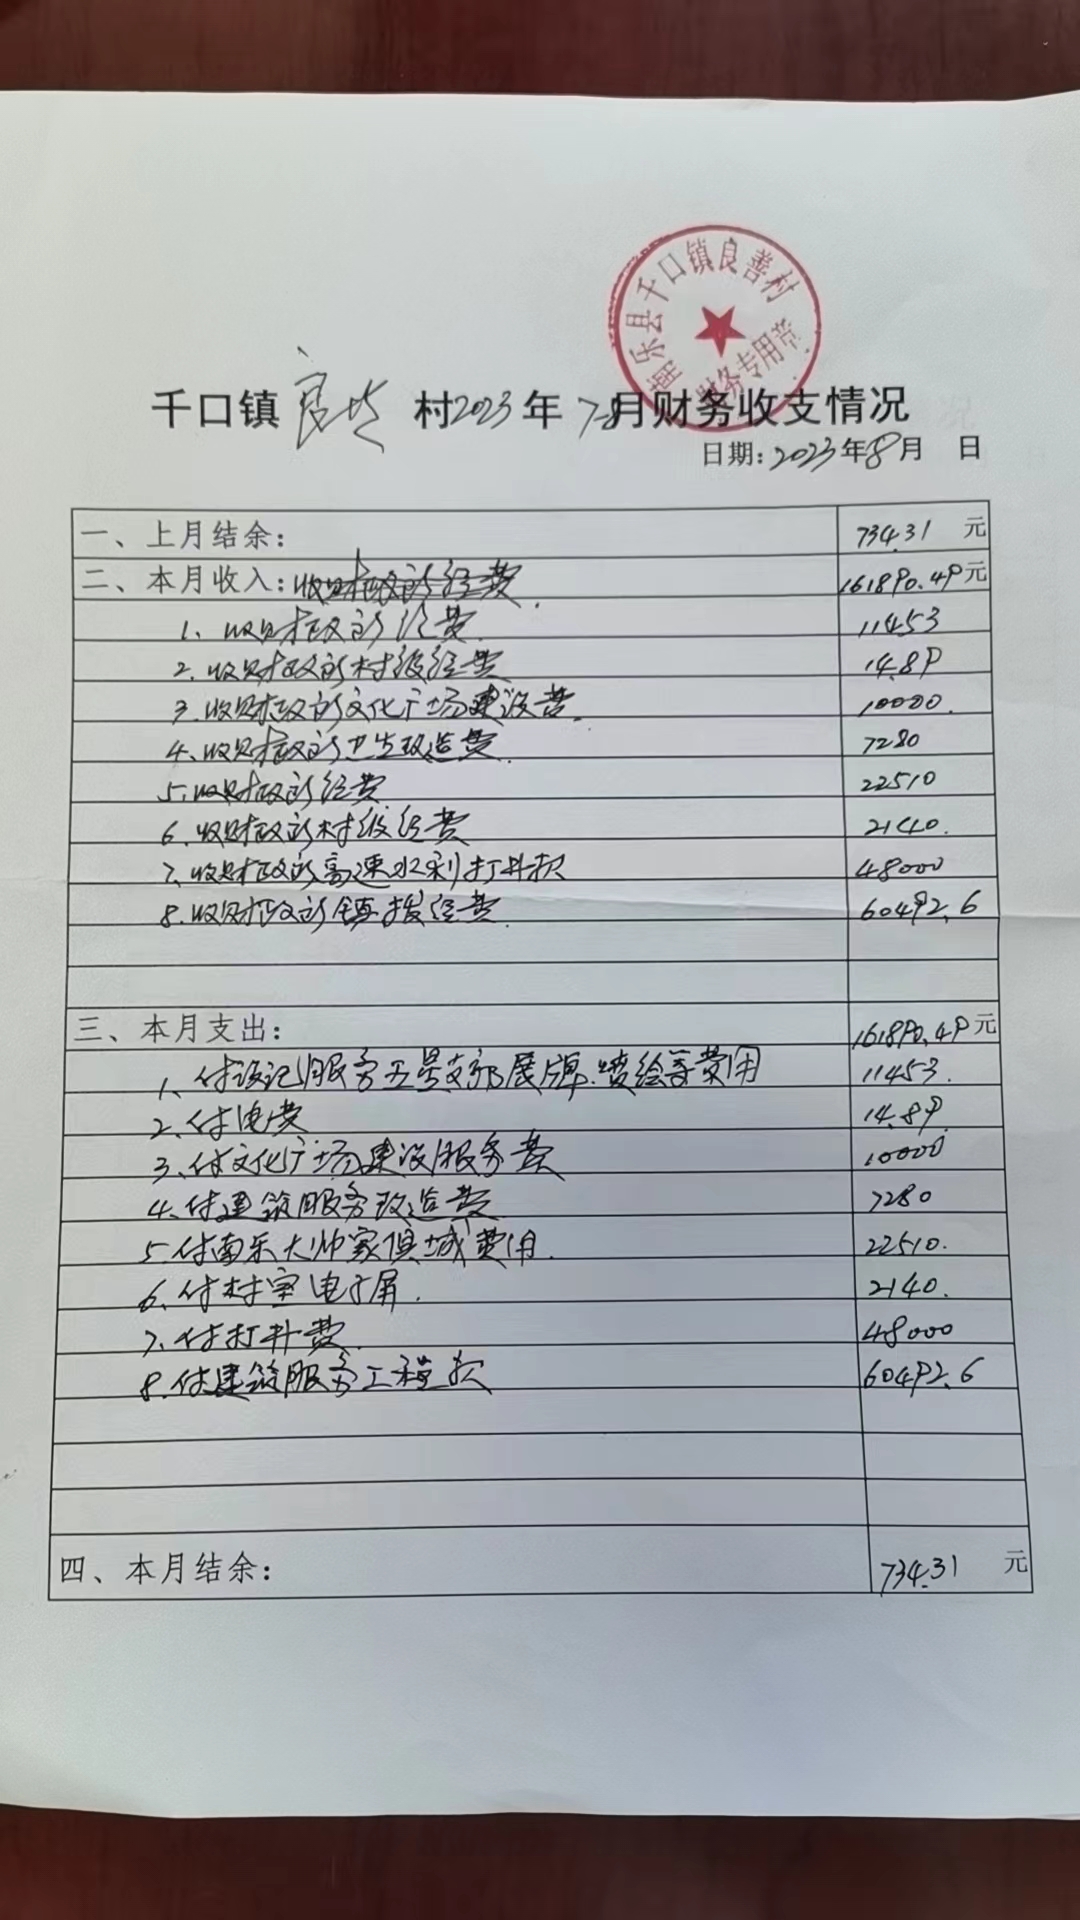 南乐县千口镇良善村
财务专用章
千口镇良善村2023年7-8月财务收支情况
日期:2023年8月 日
一、上月结余: 734.31 元
二、本月收入:收财政所经费. 161890.49元
1、收财政所经费. 11453
2、收财政所村级经费 14.89
3、收财政所文化广场建设费. 10000.
4、收财政所卫生改造费. 7280
5、收财政所经费. 22510
6、收财政所村级经费 2140.
7、收财政所高速水利打井款 48000
8、收财政所镇拨经费. 60492.6
三、本月支出: 161890.49元
1、付设记服务五星支部展牌.喷绘等费用 11453.
2、付电费 14.89
3、付文化广场建设服务费 10000
4、付建筑服务改造费. 7280
5、付南乐大帅家俱城费用. 22510.
6、付村室电子屏. 2140.
7、付打井费. 48000
8、付建筑服务工程款 60492.6
四、本月结余: 734.31 元